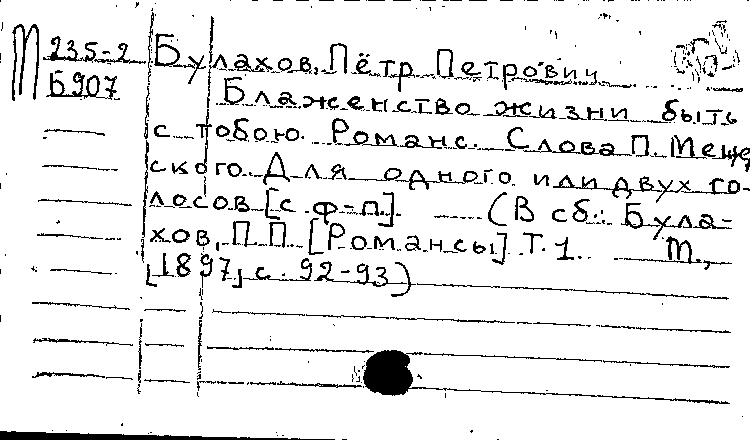 М 235-2 Булахов, Пётр Петрович
Б907 Блаженство жизни быть
с тобою. Романс. Слова П. Мещер
ского. Для одного или двух го-
лосов [с ф-п]. — (В сб.: Була-
хов, П.П. [Романсы] Т.1. М.,
[1897], с. 92-93)